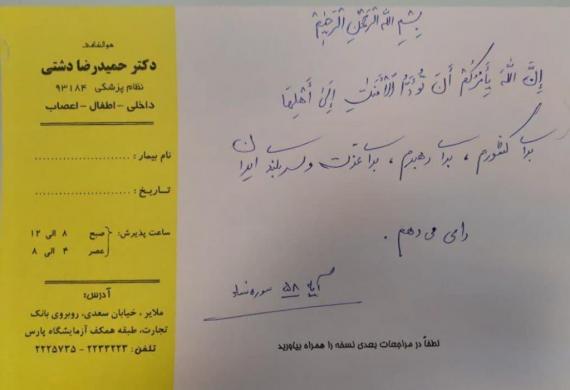 هوالشافی
دکتر حمیدرضا دشتی
نظام پزشکی ۹۳۱۸۴
داخلی - اطفال - اعصاب
نام بیمار : ....................
تـاریـخ : ....................
ساعت پذیرش: صبح ۸ الی ۱۲
عصر ۴ الی ۸
آدرس:
ملایر ، خیابان سعدی، روبروی بانک
تجارت، طبقه همکف آزمایشگاه پارس
تلفن: ۲۲۳۳۲۲۳ - ۲۲۲۵۷۳۵
بِسْمِ اللهِ الرَّحْمنِ الرَّحِیمِ
إِنَّ اللهَ یَأمُرُکُمْ أَنْ تُؤَدُّوا الْأَمَنَتِ إِلَی أَهْلِهَا
برای کشورم ، برای رهبرم ، برای عزت و سربلندی ایران
رای می دهم .
آیه ۵۸ سوره نساء
لطفاً در مراجعات بعدی نسخه را همراه بیاورید